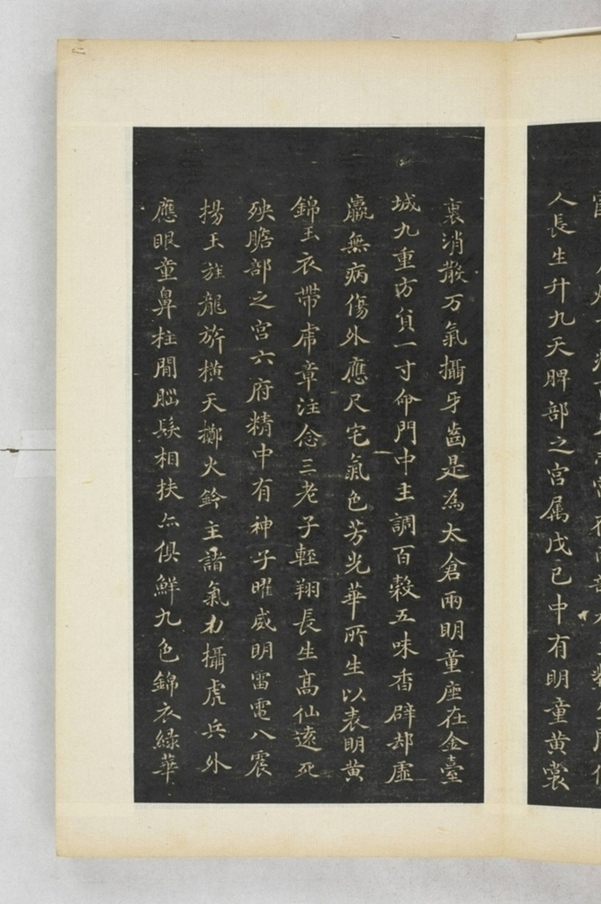 人長生升九天脾部之宮属戊己中有明童黃裳
裏消散万氣攝牙齒是為太倉兩明童座在金臺
城九重方貟一寸命門中主調百穀五味香辟却虛
羸無病傷外應尺宅氣色芳光華所生以表明黃
錦玉衣帶虎章注念三老子輕翔長生高仙遠死
殃膽部之宮六府精中有神子曜威明雷電八震
揚玉旌龍旂橫天擲火鈴主諸氣力攝虎兵外
應眼童鼻柱間腦髮相扶亦俱鮮九色錦衣綠華